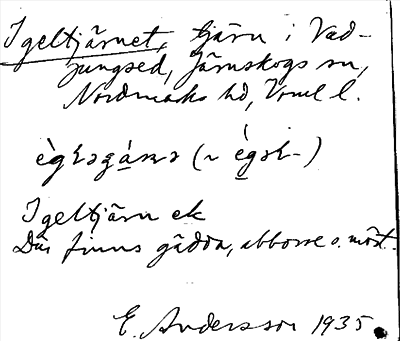 Igeltjärnet, tjärn i Vad-
jungsed, Järnskogs sn,
Nordmarks hd, Vrml l.
Igeltjärn ek
Där finns gädda, abborre o. mört.
E. Andersson 1935